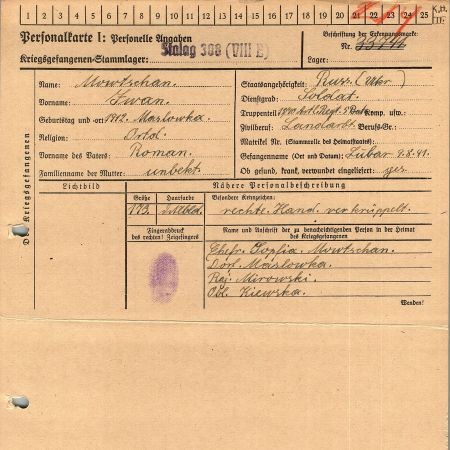 1 2 3 4 5 6 7 8 9 10 11 12 13 14 15 16 17 18 19 20 21 22 23 24 25
Personalkarte I: Personelle Angaben
Kriegsgefangenen-Stammlager: Stalag 308 (VIII E)
Beschriftung der Erkennungsmarke:
Nr.
Lager:
Des Kriegsgefangenen
Name: Mowtschan.
Vorname: Iwan.
Geburtstag und -ort 1912. Maslowka.
Religion: Ortd.
Vorname des Vaters: Roman.
Familienname der Mutter: unbekt.
Staatsangehörigkeit: Russ. (Ukr)
Dienstgrad: Soldat.
Truppenteil: Komp. usw.:
Zivilberuf: Landarb. Berufs-Gr.:
Matrikel Nr. (Stammrolle des Heimatstaates):
Gefangennahme (Ort und Datum): Lubar 9.8.41.
Ob gesund, krank, verwundet eingeliefert: ges.
Lichtbild
Nähere Personalbeschreibung
Größe
Haarfarbe
Besondere Kennzeichen:
173.
rechte Hand verkrüppelt.
Fingerabdruck
des rechten! Zeigefingers
Name und Anschrift der zu benachrichtigenden Person in der Heimat
des Kriegsgefangenen
Ehefr. Sophia Mowtschan.
Dorf. Maslowka.
Raj. Mirowski.
Obl. Kiewska.
Wenden!